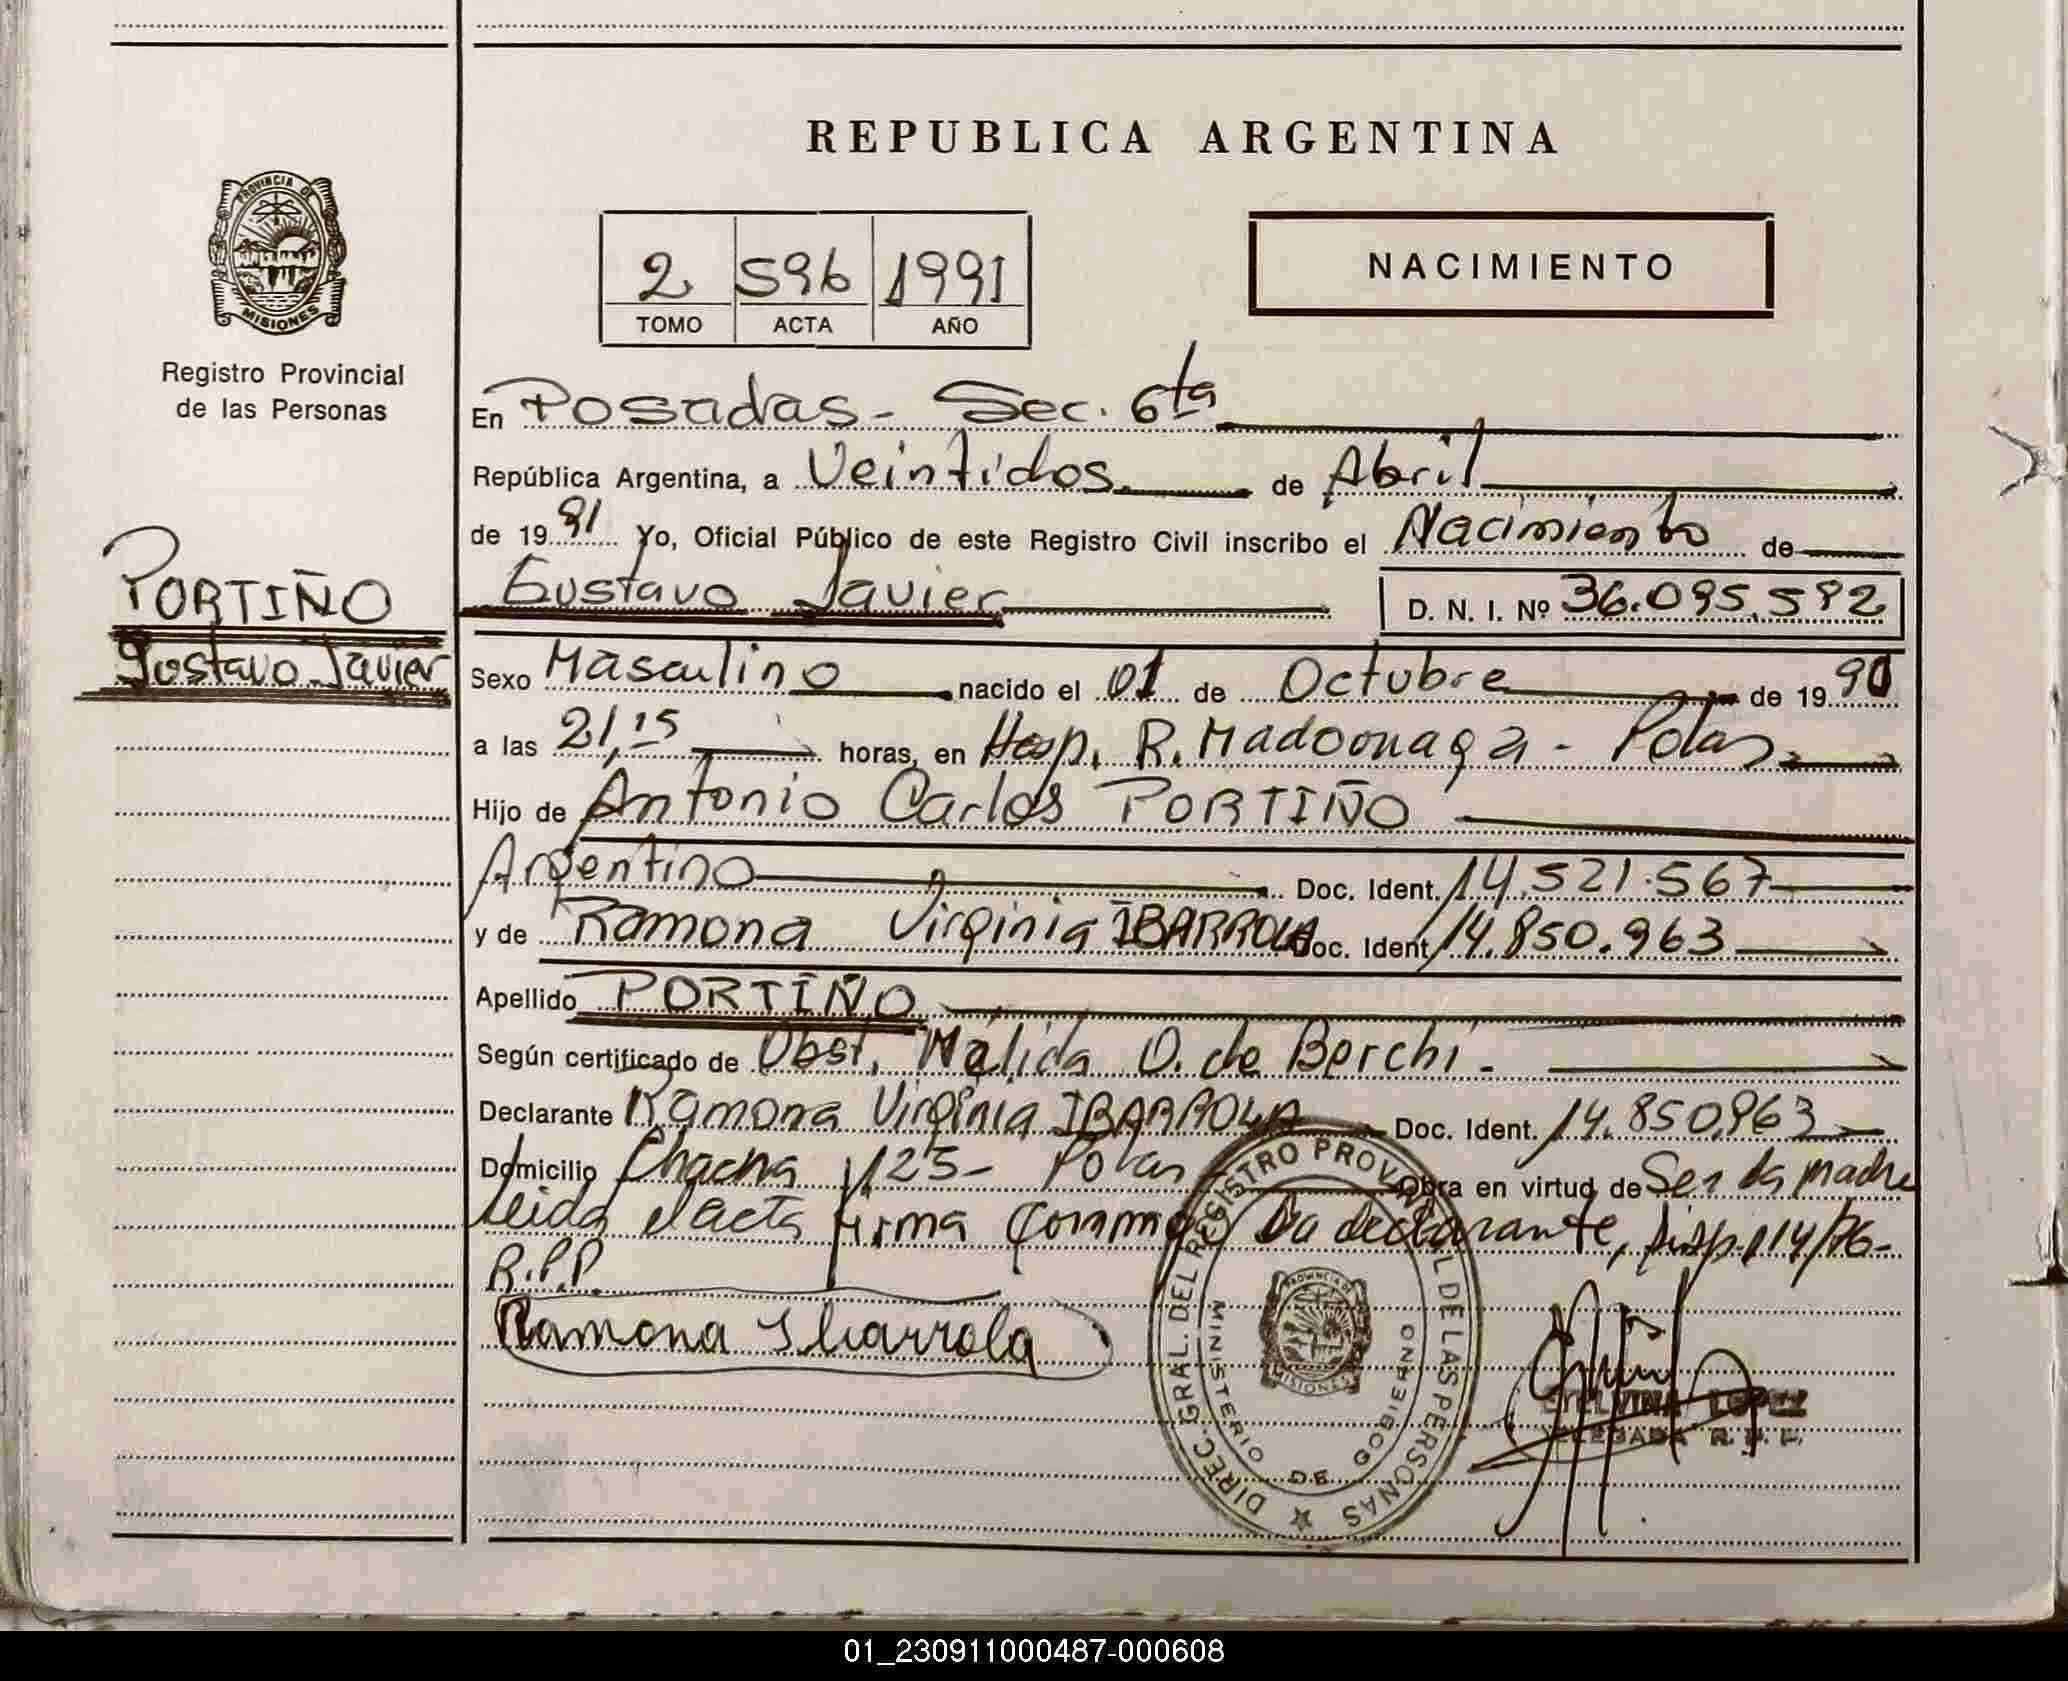 REPUBLICA ARGENTINA
PROVINCIA DE
MISIONES
Registro Provincial
de las Personas
2 596 1991
TOMO ACTA AÑO
NACIMIENTO
En Posadas - Sec. 6ta
República Argentina, a Veintidos de Abril
de 19 91 Yo, Oficial Público de este Registro Civil inscribo el Nacimiento de
PORTIÑO
Gustavo Javier
Gustavo Javier D. N. I. Nº 36.095.592
Sexo Masculino nacido el 01 de Octubre de 19 90
a las 21,15 horas, en Hosp. R. Madoonaga - Pdas.
Hijo de Antonio Carlos PORTIÑO
Argentino Doc. Ident. 14.521.567
y de Ramona Virginia IBARROLA Doc. Ident. 14.850.963
Apellido PORTIÑO
Según certificado de Obst. Málida O. de Berchi -
Declarante Ramona Virginia IBARROLA Doc. Ident. 14.850.963
Domicilio Chacra 125 - Pdas Obra en virtud de Ser la madre
Leida el acta firma conmigo La declarante, Disp. 114/76-
R.P.P.
Ramona Ibarrola
DIREC. GRAL. DEL REGISTRO PROVINCIAL DE LAS PERSONAS
MINISTERIO DE GOBIERNO
PROVINCIA DE
MISIONES
ETELVINA LOPEZ
DELEGADA R. P. P.
01_230911000487-000608